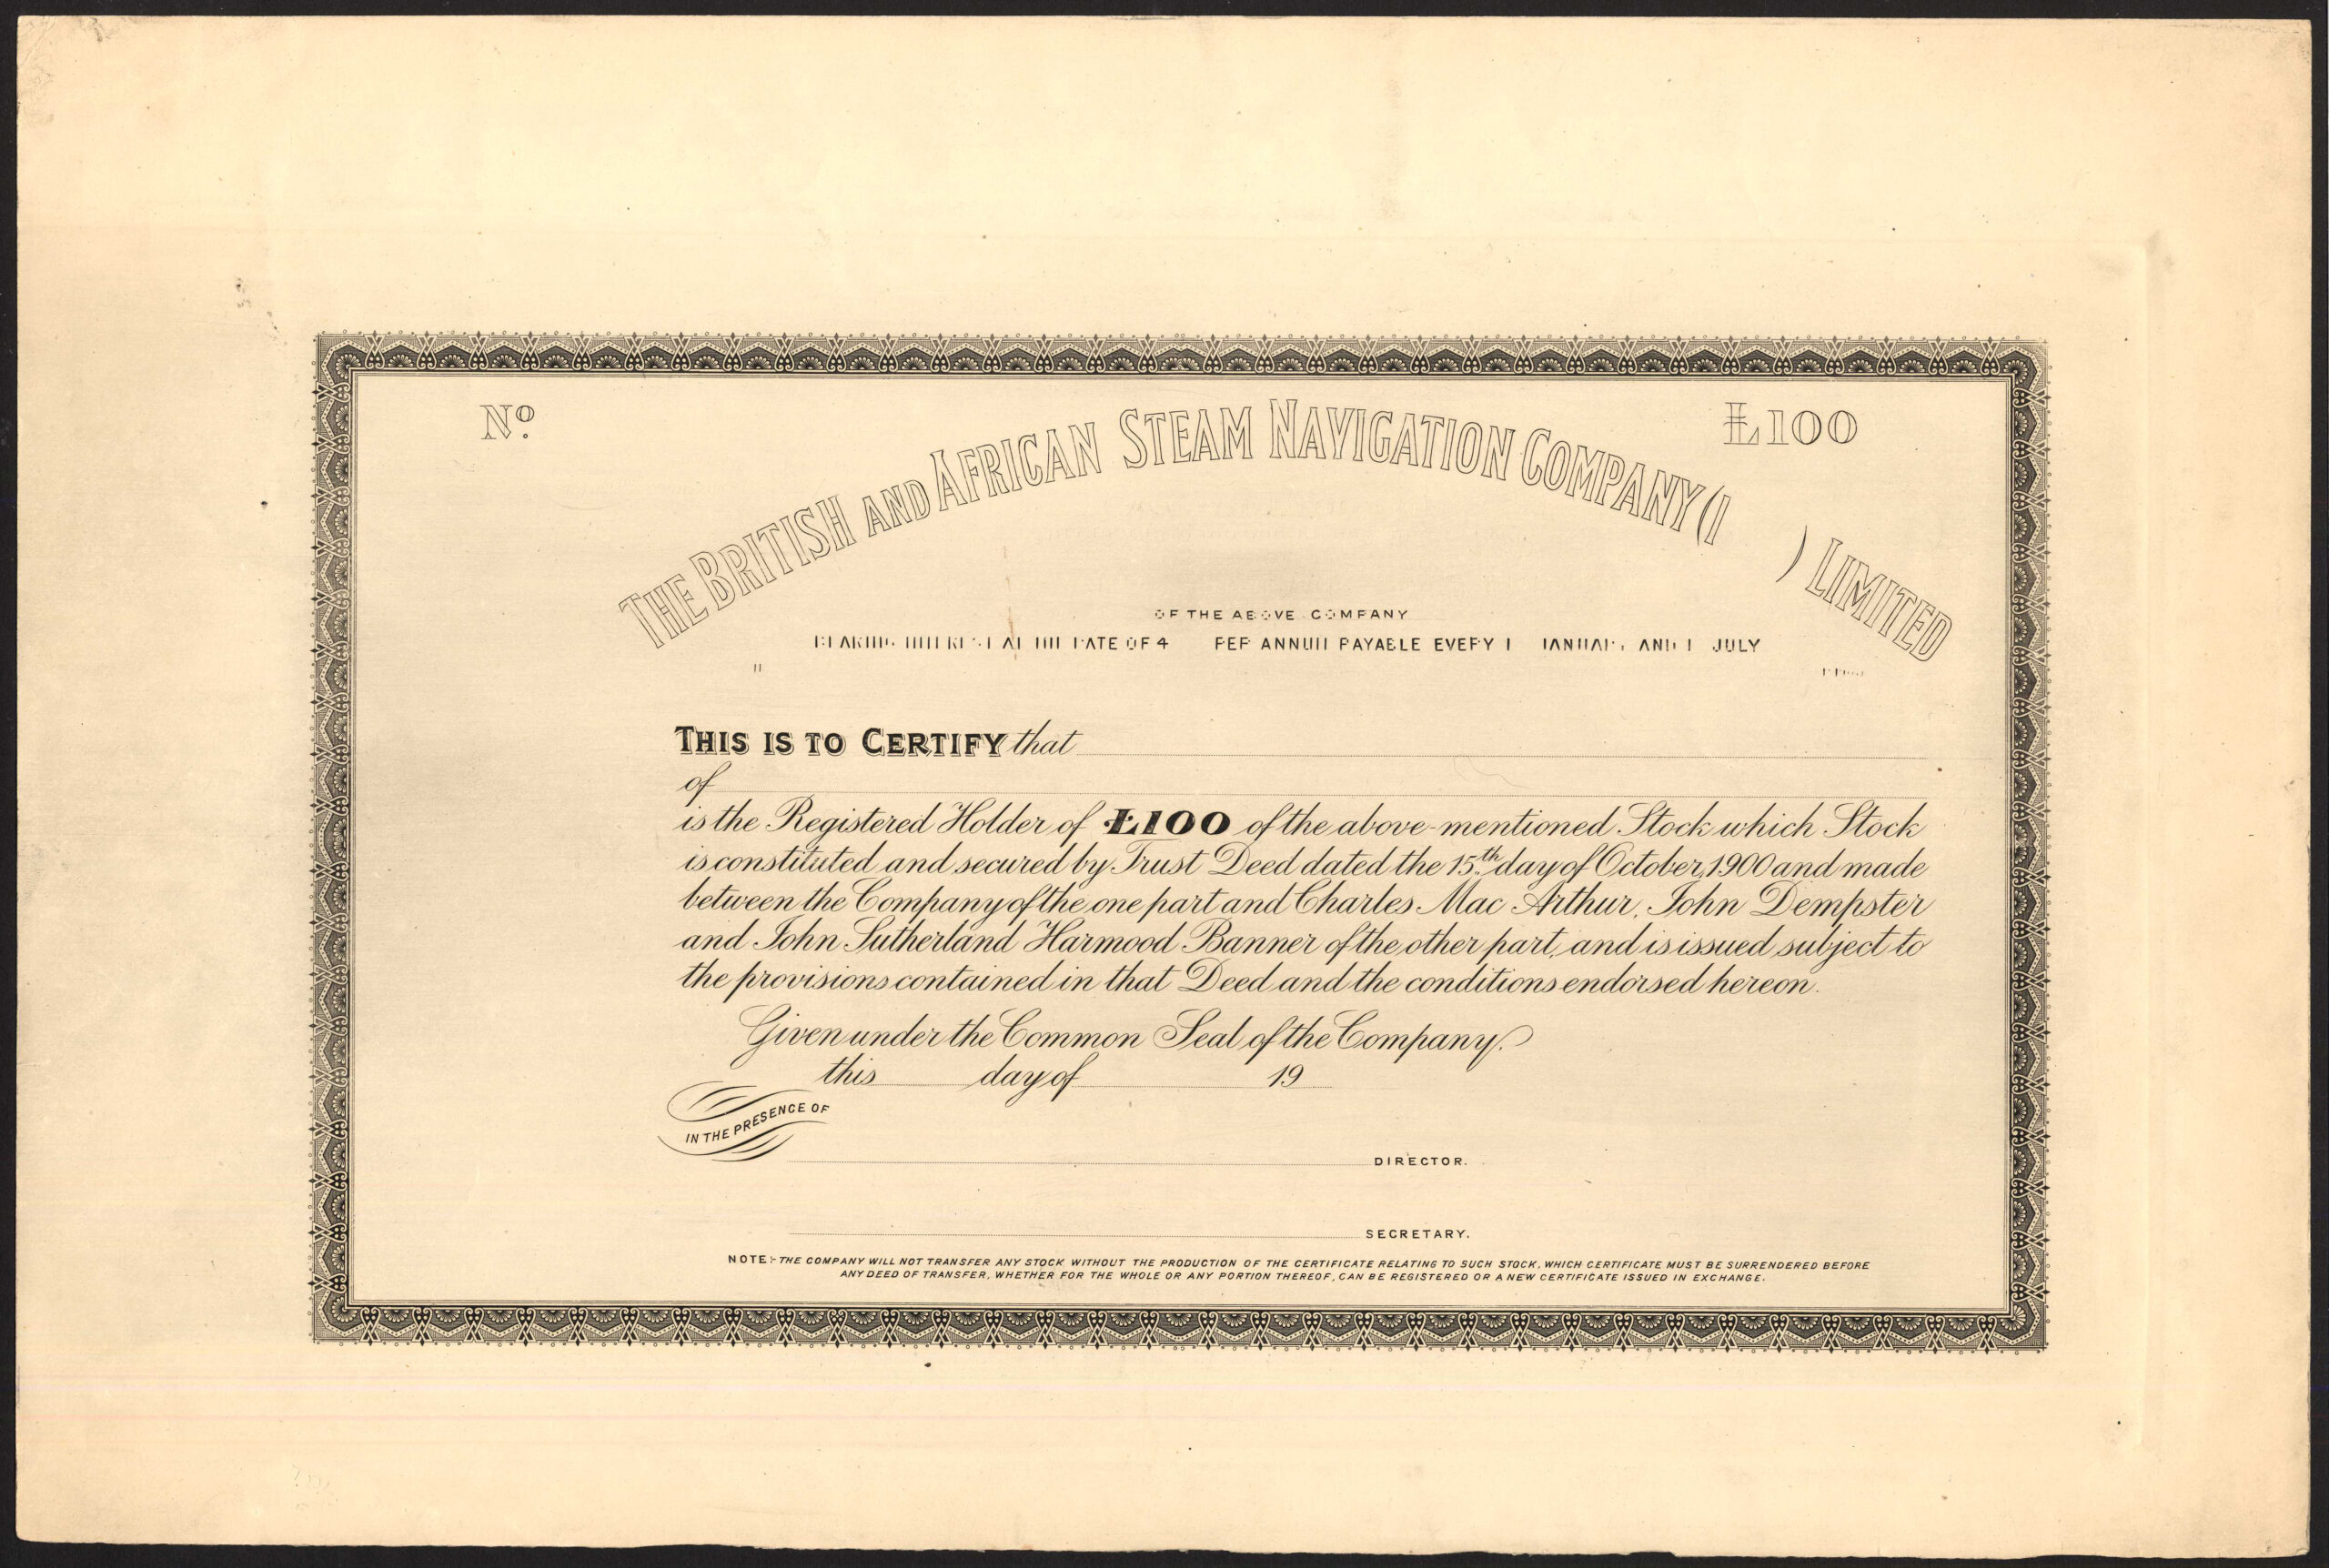 Nº.
£100
THE BRITISH AND AFRICAN STEAM NAVIGATION COMPANY (1 ) LIMITED
OF THE ABOVE COMPANY
RATE OF 4 PER ANNUM PAYABLE EVERY 1 JANUARY AND 1 JULY
THIS IS TO CERTIFY that
of
is the Registered Holder of £100 of the above-mentioned Stock which Stock
is constituted and secured by Trust Deed dated the 15th day of October, 1900 and made
between the Company of the one part and Charles Mac Arthur, John Dempster
and John Sutherland Harmood Banner of the other part, and is issued subject to
the provisions contained in that Deed and the conditions endorsed hereon.
Given under the Common Seal of the Company.
this day of 19
IN THE PRESENCE OF
DIRECTOR.
SECRETARY.
NOTE:- THE COMPANY WILL NOT TRANSFER ANY STOCK WITHOUT THE PRODUCTION OF THE CERTIFICATE RELATING TO SUCH STOCK, WHICH CERTIFICATE MUST BE SURRENDERED BEFORE
ANY DEED OF TRANSFER, WHETHER FOR THE WHOLE OR ANY PORTION THEREOF, CAN BE REGISTERED OR A NEW CERTIFICATE ISSUED IN EXCHANGE.